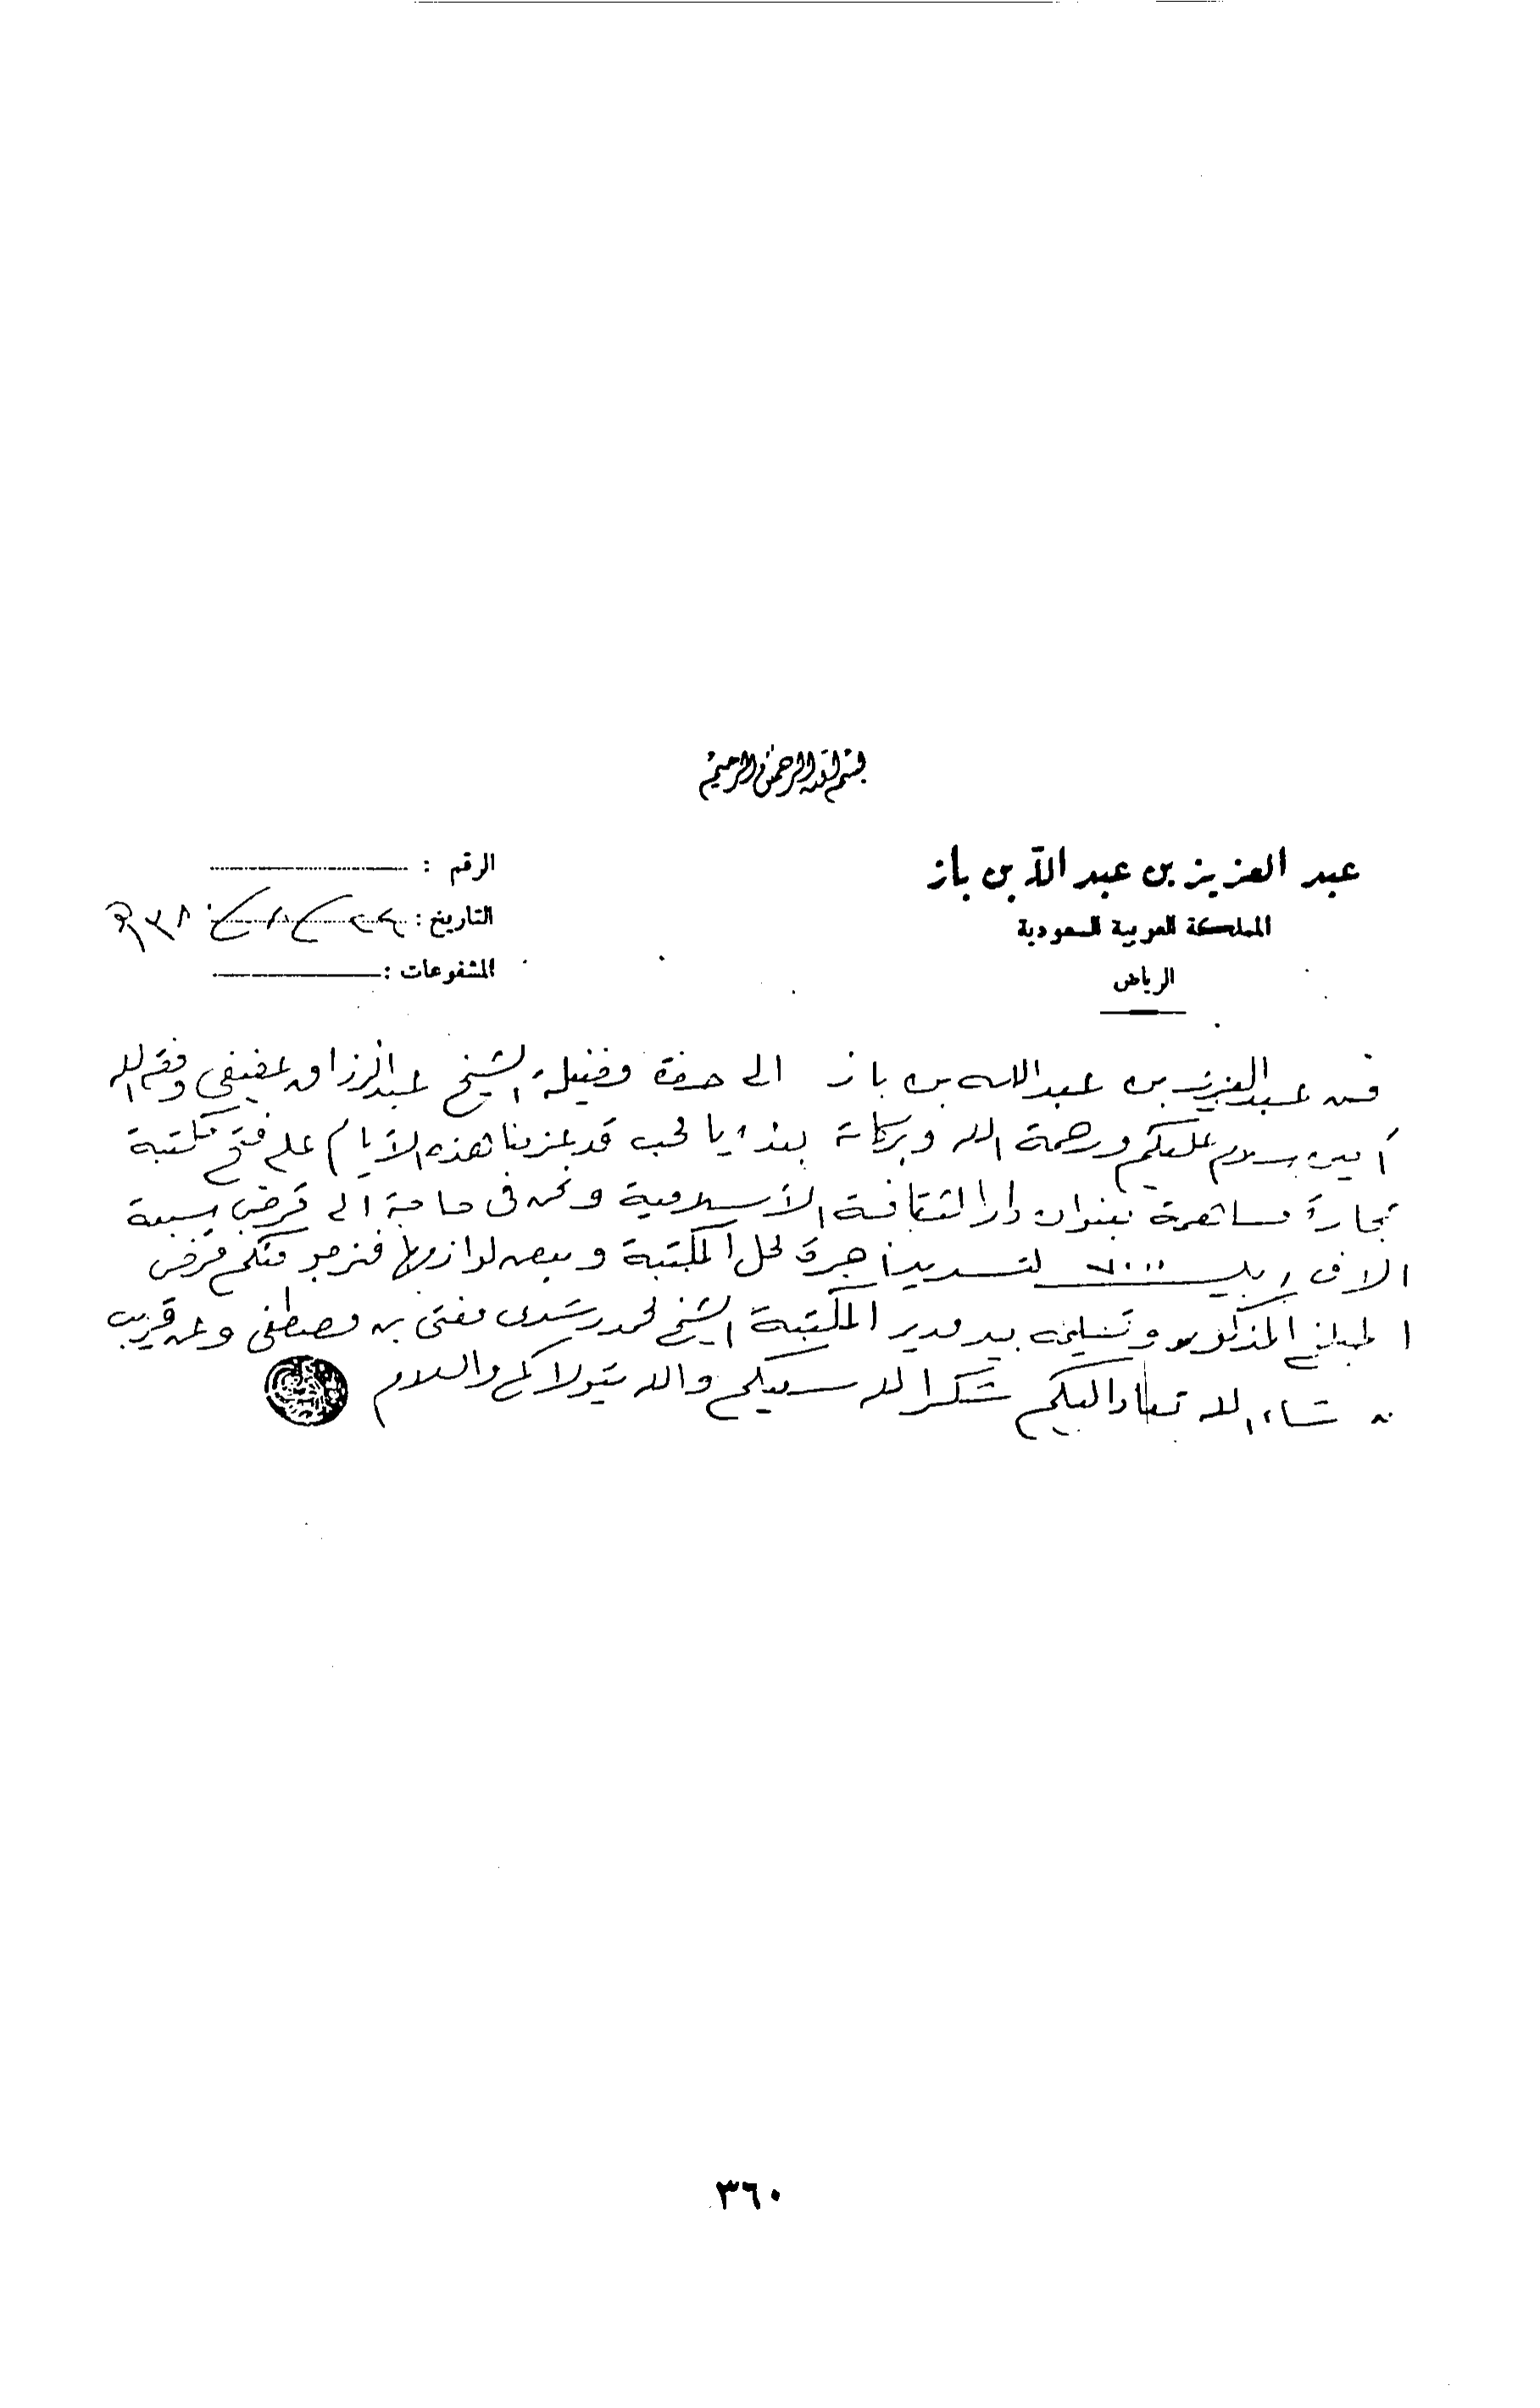 بسم الله الرحمن الرحيم
عبد العزيز بن عبد الله بن باز
المملكة العربية السعودية
الرياض
الرقم :
التاريخ :
المشفوعات :
من عبد العزيز بن عبد الله بن باز الى حضرة فضيلة الشيخ عبد الرزاق عفيفي وفقه الله
آمين سلام عليكم ورحمة الله وبركاته بعده يا محب قد عزمنا هذه الأيام على فتح مكتبة
تجارة مساهمة بعنوان دار الثقافة الأسلامية ونحن فى حاجة الى قرض سبعة
الاف ريال ٧٠٠٠ لتسديد اجرة محل المكتبة وبعض لوازمها فنرجو منكم قرض
المبلغ المذكور وتسليمه بيد مدير المكتبة الشيخ محمد رشدى مفتى بن مصطفى وعن قريب
ان شاء الله تعاد اليكم شكر الله سعيكم والله يتولاكم والسلام
٣٦٠